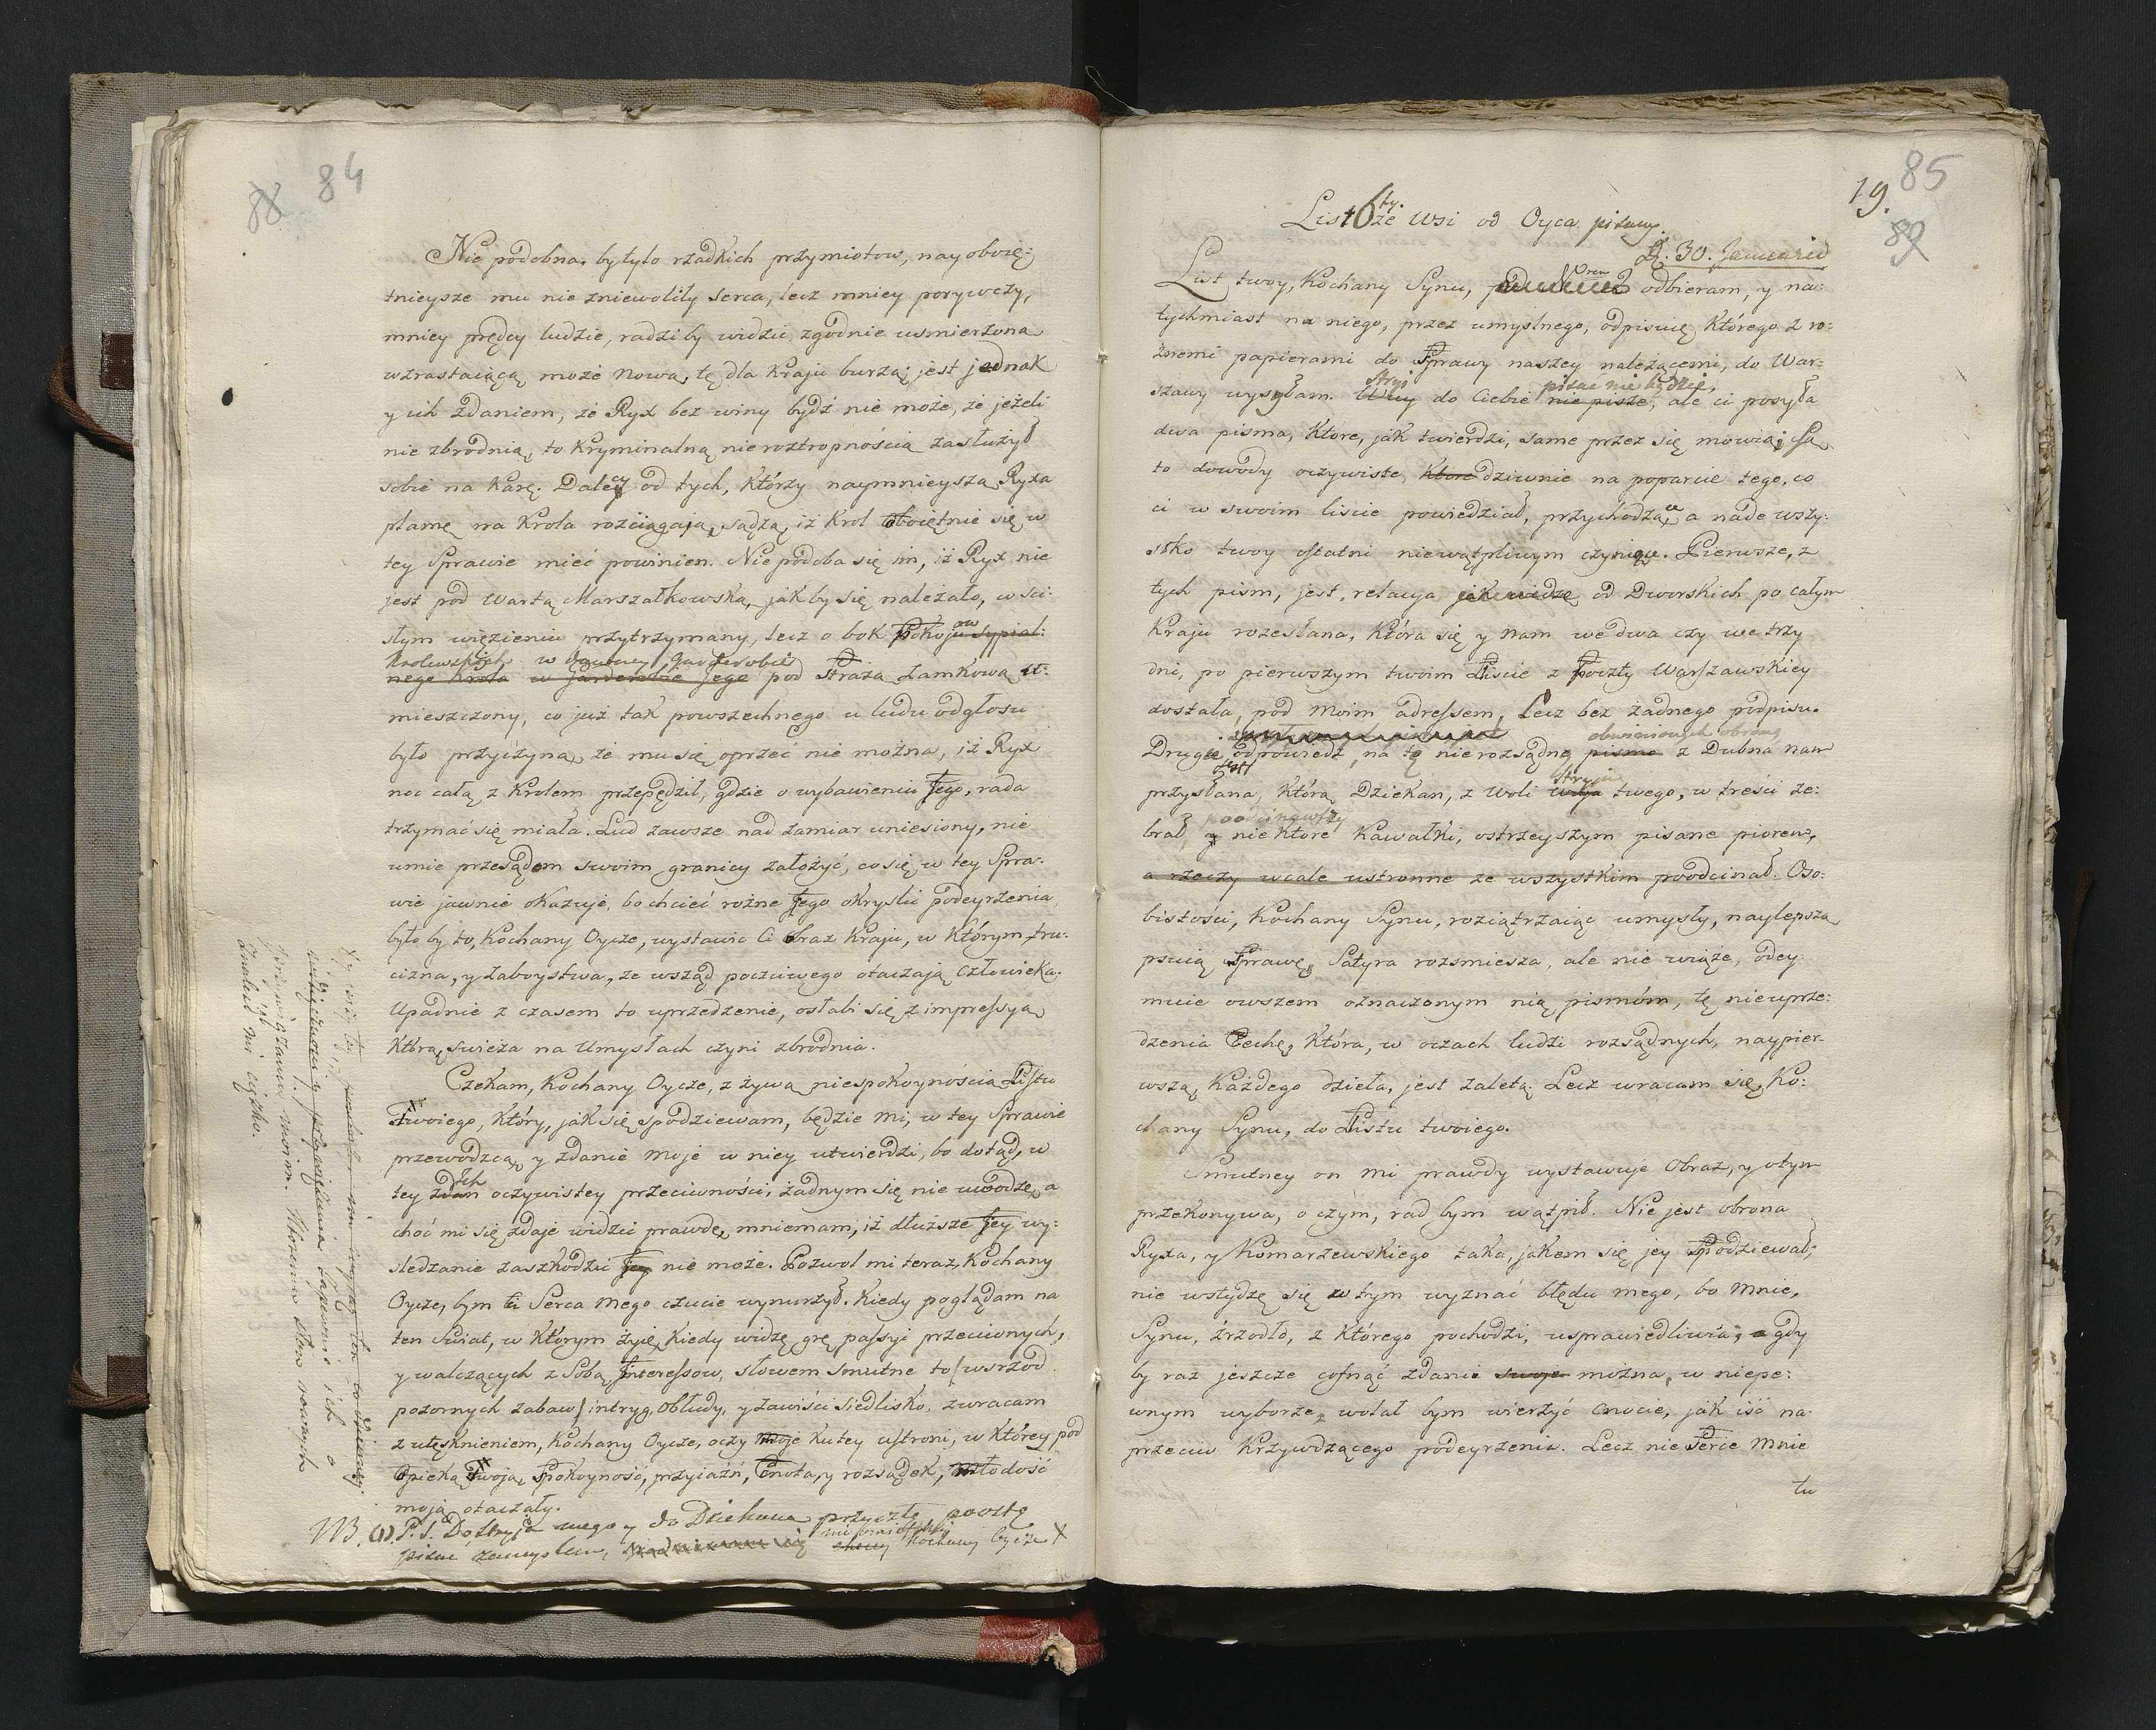 88 84
Nie podobna, by tylo rzadkich przymiotow, nayoboię:
tnieysze mu nie zniewoliły serca, lecz mniey porywczy,
mniey prędcy ludzie, radziby widzieć zgodnie uśmierzoną
wzrastaiącą może nową, tę dla Kraju burzą; jest jednak
y ich zdaniem, że Ryx bez winy bydź nie może, że jeżeli
nie zbrodnią, to Kryminalną nieroztropnością zasłużył
sobie na Karę. Dalecy od tych, którzy naymnieyszą Ryxa
plamę na Krola rozciągaią, sądzą, iż Krol oboiętnie się w
tey Sprawie mieć powinien. Nie podoba się im, iż Ryx nie
jest pod Wartą Marszałkowską, jakby się należało, w ści:
słym więzieniu przytrzymany, lecz o bok Pokojow sypial:
Krolewskich w Garderobie
nego Krola w Garderobie jego pod Strażą Zamkową u:
mieszczony, co już tak powszechnego u ludu odgłosu
było przyczyną, że mu się oprzeć nie można, iż Ryx
noc całą z Krolem przepędził, gdzie o wybawieniu Jego, rada
trzymać się miała. Lud zawsze nad zamiar uniesiony, nie
umie przesądom swoim granicy założyć, co się w tey Spra:
wie jawnie okazuje, bo chcieć rożne Jego okryslić podeyrzenia
było by to, Kochany Oycze, wystawic Ci obraz Kraju, w Którym tru:
cizna, y zaboystwa, ze wsząd poczciwego otaczają człowieka.
Upadnie z czasem to uprzedzenie, osłabi się z impressyą
Którą, swieża na Umysłach czyni zbrodnia.
Czekam, Kochany Oycze, z żywą niespokoynością Listu
Twoiego, Który, jak się spodziewam, będzie mi, w tey Sprawie
przewodzcą, y zdanie moje w niey utwierdzi, bo dotąd, w
tey zdan ich oczywistey przeciwności, żadnym się nie uwodzę, a
choć mi się zdaje widzieć prawdę, mniemam, iż dłuższe Jey wy:
sledzanie zaszkodzić Jey nie może. Pozwol mi teraz, Kochany
Oycze, bym Ci Serca mego czucie wynurzył. Kiedy poglądam na
ten Swiat, w Którym żyię, Kiedy widzę grę passyi przeciwnych,
y walczących z Sobą Interessow, słowem smutne to / wsrzod
pozornych zabaw / intryg, Obłudy, y zawiści siedlisko, zwracam
z utęsknieniem, Kochany Oycze, oczy moje Ku tey ustroni, w Którey pod
Opieką Twoją, Spokoyność, przyiaźń, Cnota, y rozsądek, młodość
moją otaczały.
NB. (1) P.S. Do Stryja mego y do Dziekana przyszłą pocztą
pisać zamyslam, Kochany Oycze X
zapewnic ich o
przywiązaniu moim. Ktoremu słow nowych
znaleźć mi ciężko.
19. 85
89
List 6ty. ze Wsi od Oyca pisany.
D. 30. Januarii
List twoy, Kochany Synu, odbieram, y na:
tychmiast na niego, przez umyslnego, odpisuię, Którego z ro:
żnemi papierami do Sprawy naszey należącemi, do War:
Stryi pisać nie będzie,
szawy wysyłam. Wuy do Ciebie nie pisze, ale ci posyła
dwa pisma, Ktore, jak twierdzi, same przez się mowią; Są
to dowody oczywiste, Ktore dziwnie na poparcie tego, co
ci w swoim liście powiedział, przychodzące a nade wszy:
stko twoy ostatni niewątpliwym czyniące. Pierwsze, z
tych pism, jest relacya jak widzę od Dworskich po całym
Kraju rozesłana, Która się y nam we dwa czy we trzy
dni, po pierwszym twoim Liście z Poczty Warszawskiey
dostała, pod moim adressem, Lecz bez żadnego podpisu.
obwinionych obronę
Drugie jest odpowiedź, na tę nierozsądną pismo z Dubna nam
przysłana, Którą Dziekan, z woli Stryia wuja twego, w treści ze:
poodcinawszy
brał y nie Ktore Kawałki, ostrzeyszym pisane piorem,
a rzeczy wcale ustronne ze wszystkim poodcinał. Oso:
bistości, Kochany Synu, roziątrzaiąc umysły, naylepszą
psuią Sprawę, Satyra rozsmiesza, ale nie wiąże, odey:
muie owszem oznaczonym nią pismóm, tę nieuprze:
dzenia Cechę, Która, w oczach ludzi rozsądnych, naypier:
wszą, Każdego dzieła, jest zaletą. Lecz wracam się, Ko:
chany Synu, do Listu twoiego.
Smutney on mi prawdy wystawuje Obraz, y o tym
przekonywa, o czym, rad bym wątpił. Nie jest obrona
Ryxa, y Komarzewskiego taka, jakem się jey Spodziewał,
nie wstydzę się w tym wyznać błędu mego, bo mnie,
Synu, źrzodło, z Którego pochodzi, usprawiedliwia; a gdy
by raz jeszcze cofnąć zdanie swoje można, w niepe:
wnym wyborze, wolał bym wierzyć Cnocie, jak iść na:
przeciw Krzywdzącego podeyrzenia. Lecz nie Serce mnie
tu